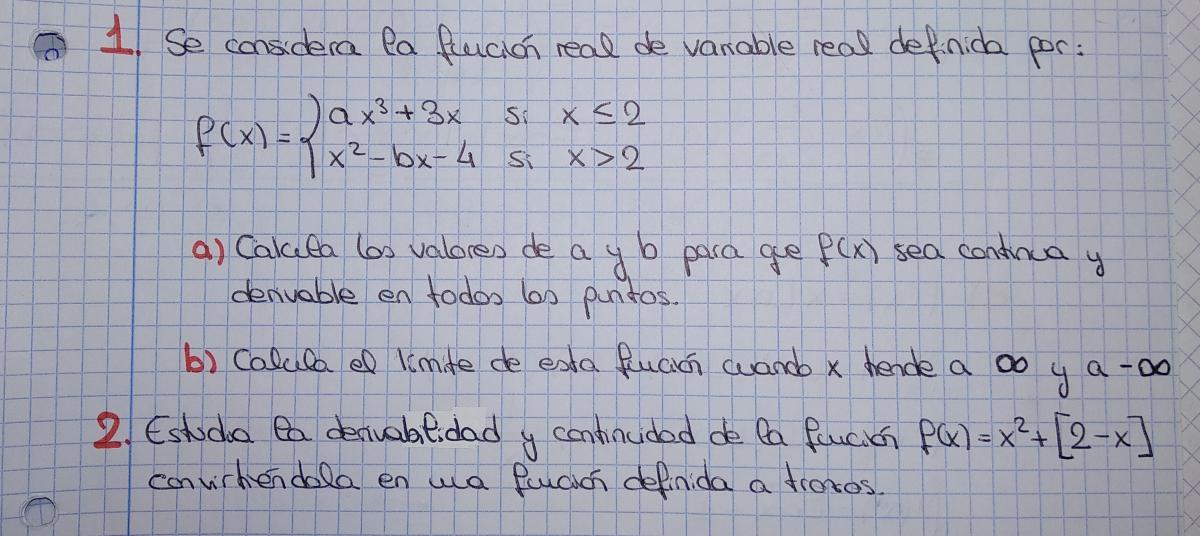 1. Se considera la función real de variable real definida por:
f(x) = { ax³ + 3x si x ≤ 2
x² - bx - 4 si x > 2
a) Calcula los valores de a y b para que f(x) sea continua y
derivable en todos los puntos.
b) Calcula el límite de esta función cuando x tiende a ∞ y a -∞
2. Estudia la derivabilidad y continuidad de la función f(x) = x² + [2 - x]
convirtiéndola en una función definida a trozos.